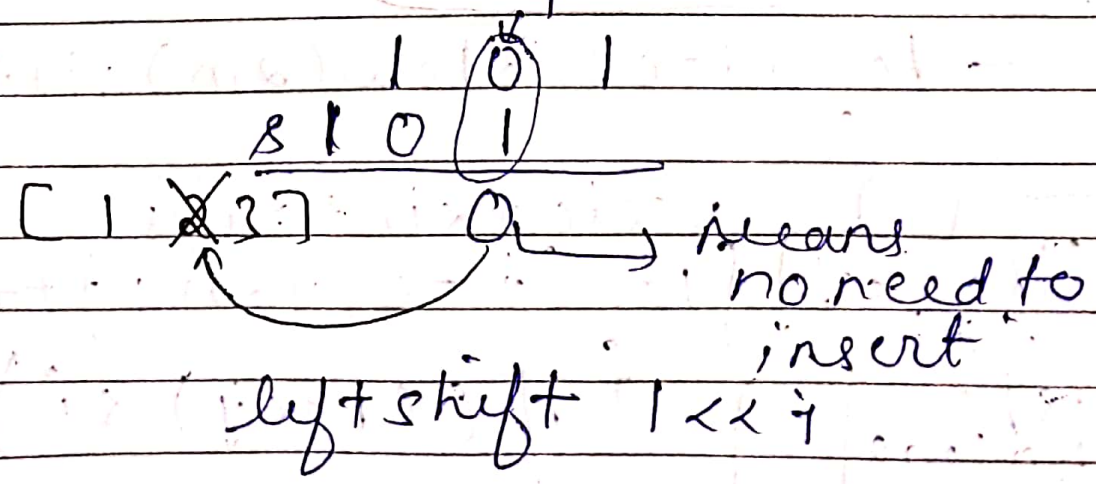 1 0 1
& 1 0 1
[ 1 2 3 ] 0 → means
no need to
insert
left shift 1 << i